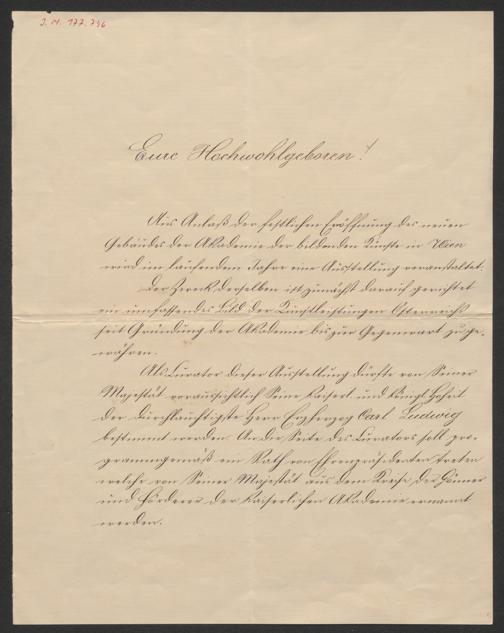 J. N. 177.796
Eure Hochwohlgeboren!
Aus Anlaß der festlichen Eröffnung des neuen
Gebäudes der Akademie der bildenden Künste in Wien
wird im laufenden Jahre eine Ausstellung veranstaltet.
Der Zweck derselben ist zunächst darauf gerichtet
ein umfassendes Bild der Kunstleistungen Österreichs
seit Gründung der Akademie bis zur Gegenwart zu ge-
währen.
Als Curator dieser Ausstellung dürfte von Seiner
Majestät voraussichtlich Seine Kaiserl. und Königl. Hoheit
der Durchlauchtigste Herr Erzherzog Carl Ludwig
bestimmt werden. An die Seite des Curators soll pro-
grammgemäß ein Rath von Ehrenpräsidenten treten
welche von Seiner Majestät aus dem Kreise der Gönner
und Förderer der Kaiserlichen Akademie ernannt
werden.